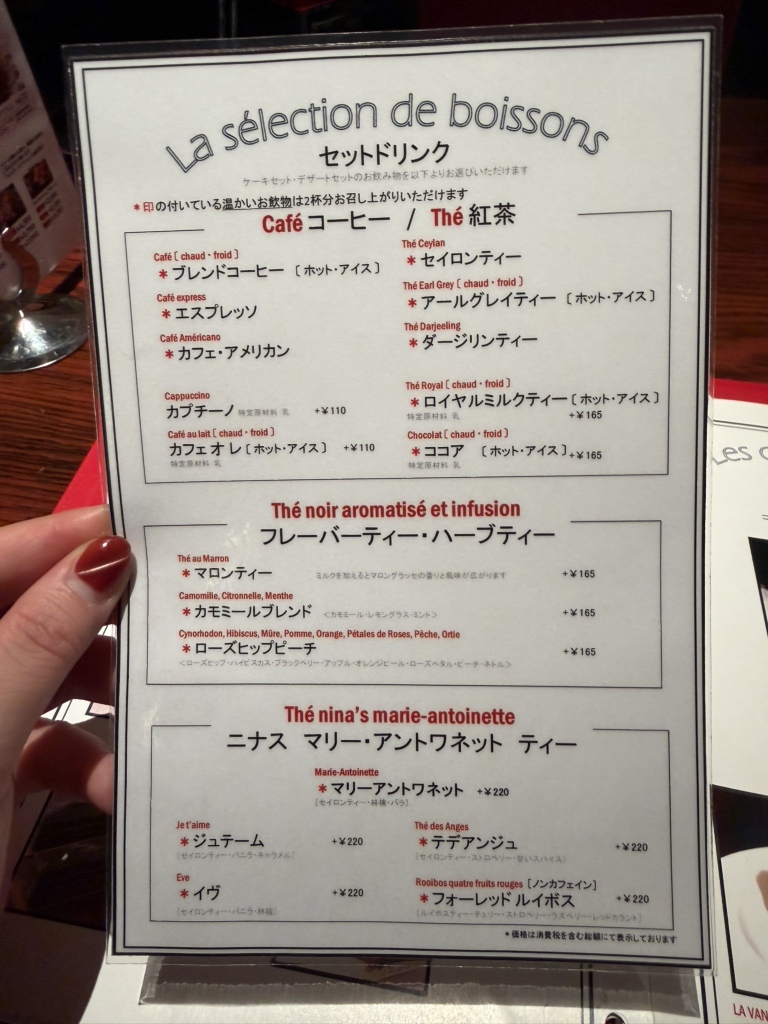 La sélection de boissons
セットドリンク
ケーキセット・デザートセットのお飲み物を以下よりお選びいただけます
＊印の付いている温かいお飲物は2杯分お召し上がりいただけます
Café コーヒー / Thé 紅茶
Café〔 chaud・froid 〕
＊ブレンドコーヒー〔ホット・アイス〕
Café express
＊エスプレッソ
Café Américano
＊カフェ・アメリカン
Cappuccino
カプチーノ 特定原材料 乳 +¥110
Café au lait〔 chaud・froid 〕
カフェ オ レ〔ホット・アイス〕 +¥110
特定原材料 乳
Thé Ceylan
＊セイロンティー
Thé Earl Grey〔 chaud・froid 〕
＊アールグレイティー〔ホット・アイス〕
Thé Darjeeling
＊ダージリンティー
Thé Royal〔 chaud・froid 〕
＊ロイヤルミルクティー〔ホット・アイス〕
特定原材料 乳 +¥165
Chocolat〔 chaud・froid 〕
＊ココア〔ホット・アイス〕+¥165
特定原材料 乳
Thé noir aromatisé et infusion
フレーバーティー・ハーブティー
Thé au Marron
＊マロンティー ミルクを加えるとマロングラッセの香りと風味が広がります +¥165
Camomilie, Citronnelle, Menthe
＊カモミールブレンド <カモミール・レモングラス・ミント> +¥165
Cynorhodon, Hibiscus, Mûre, Pomme, Orange, Pétales de Roses, Pêche, Ortie
＊ローズヒップピーチ +¥165
<ローズヒップ・ハイビスカス・ブラックベリー・アップル・オレンジピール・ローズペタル・ピーチ・ネトル>
Thé nina's marie-antoinette
ニナス マリー・アントワネット ティー
Marie-Antoinette
＊マリーアントワネット +¥220
[セイロンティー・林檎・バラ]
Je t'aime
＊ジュテーム +¥220
[セイロンティー・バニラ・キャラメル]
Thé des Anges
＊テデアンジュ +¥220
[セイロンティー・ストロベリー・甘いスパイス]
Eve
＊イヴ +¥220
[セイロンティー・バニラ・林檎]
Rooibos quatre fruits rouges [ノンカフェイン]
＊フォーレッド ルイボス +¥220
[ルイボスティー・チェリー・ストロベリー・ラズベリー・レッドカラント]
＊価格は消費税を含む総額にて表示しております
Les
LA VAN